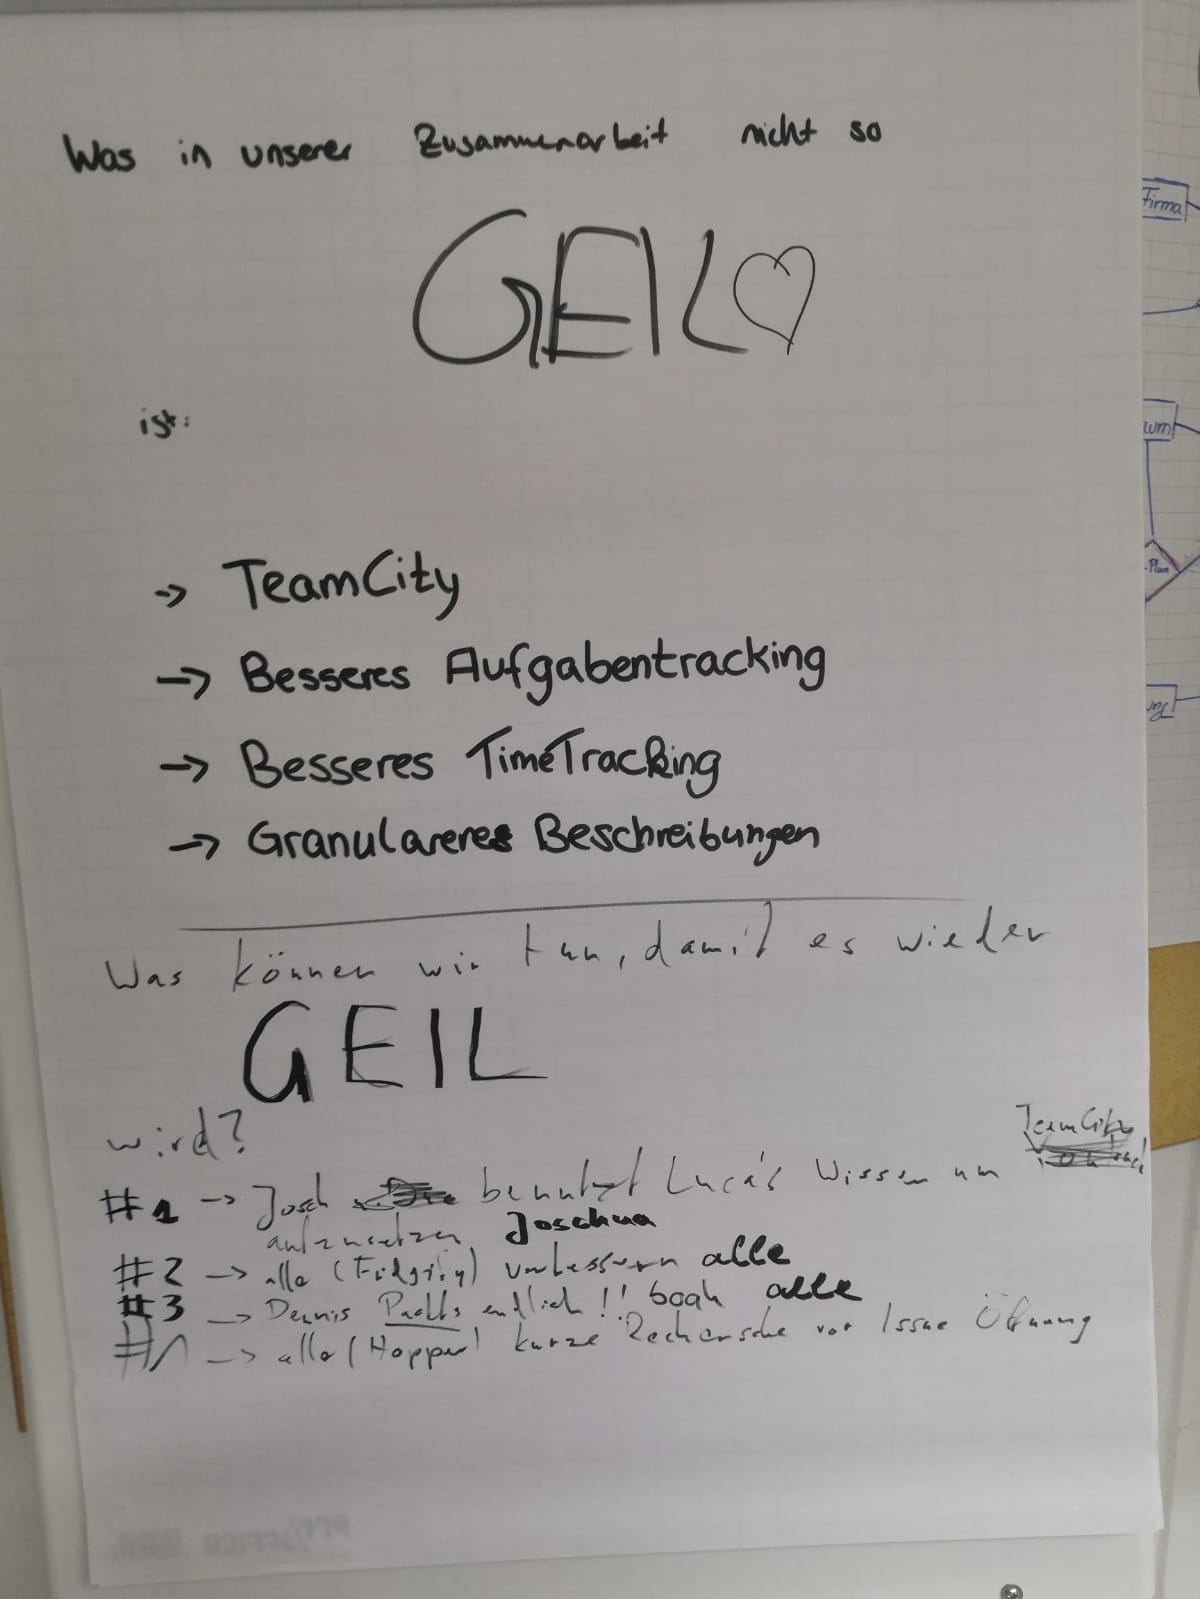 Was in unserer Zusammenarbeit nicht so
GEIL
ist:
-> TeamCity
-> Besseres Aufgabentracking
-> Besseres TimeTracking
-> Granulareres Beschreibungen
Was können wir tun, damit es wieder
GEIL
wird?
TeamCity
#1 -> Josch benutzt Luca's Wissen um
aufzusetzen Joschua
#2 -> alle verbessern alle
#3 -> Dennis endlich!! boah alle
-> alle (Hopper) kurze Recherche vor Issue Öffnung
Firma
Plan